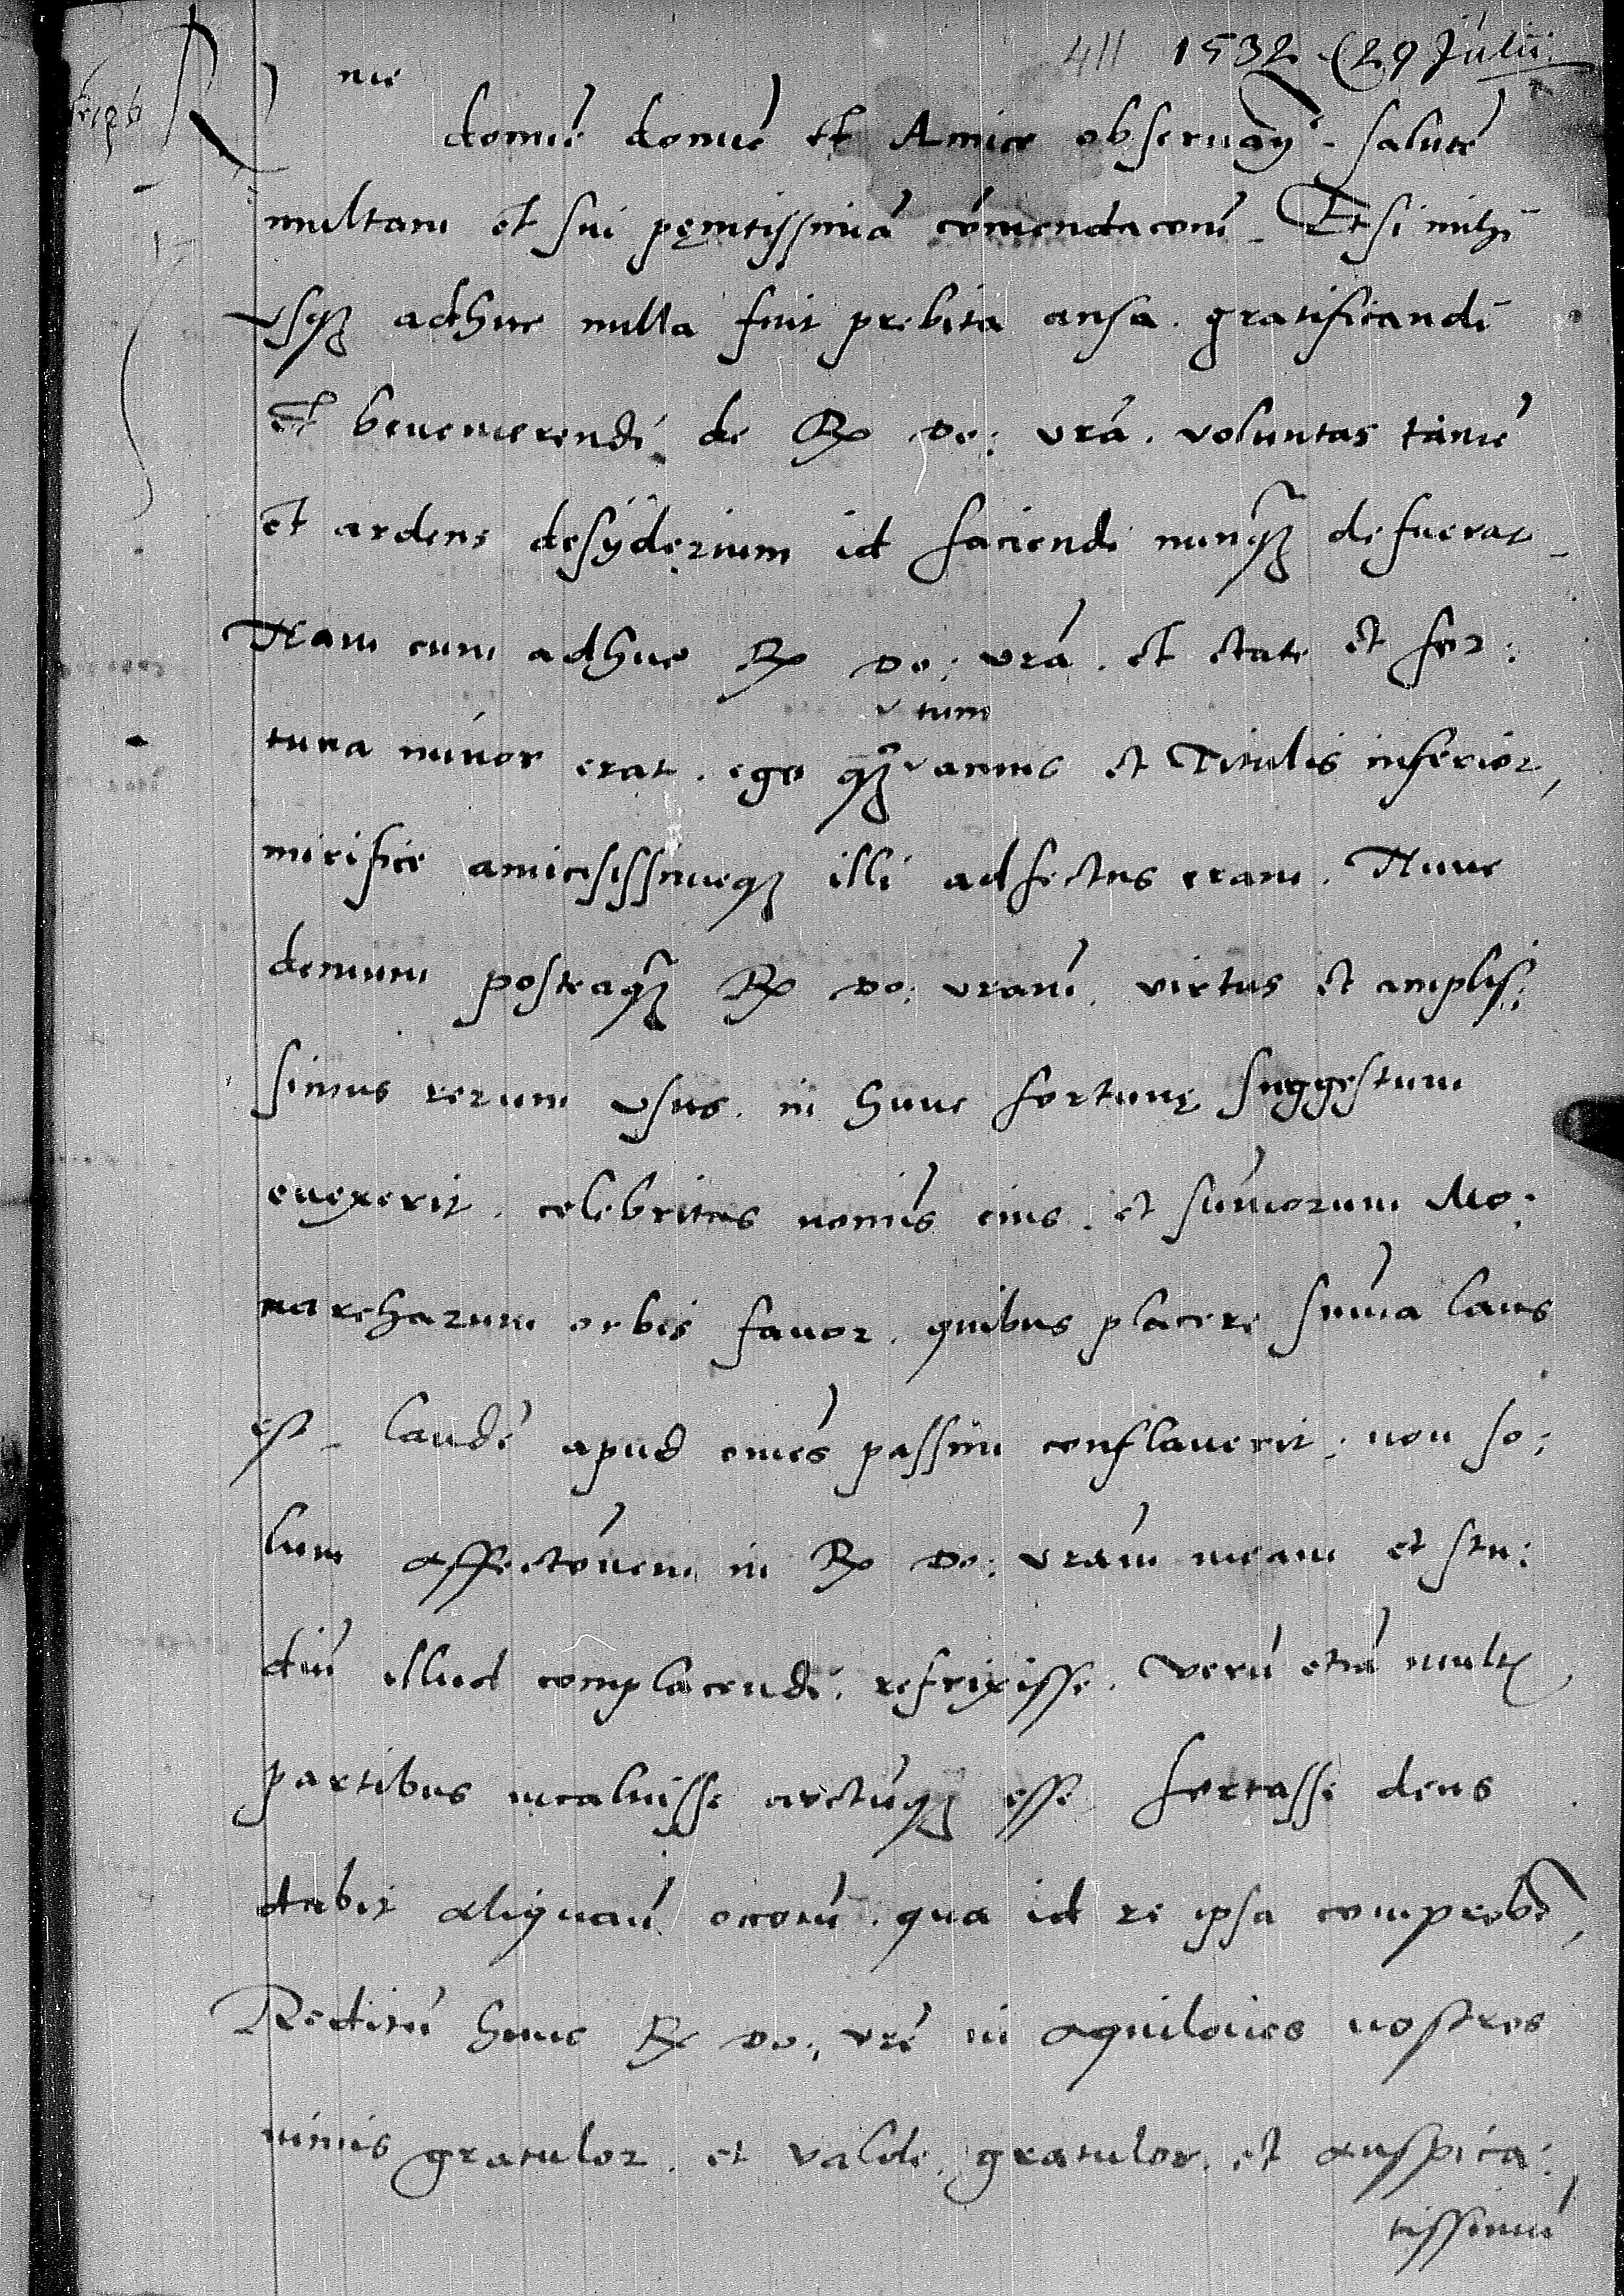 411 1532 (29 Julii
R me
domine domine et Amice observan. salutē
multam et sui pęnitissimā cōmendaconē. Etsi mihi
vsqꝫ adhuc nulla fuit prebita ansa. gratificandi
et benemerendi de R do: vrā. voluntas tamē
et ardens desyderium id faciendi nunqꝫ defuerat
Nam cum adhuc R do: vrā. et etate et for:
tuna minor erat. ego qꝫ tum annis et Titulis inferior,
mirifice amicisissimeqꝫ illi adfectus eram. Nunc
demum posteaqꝫ R do: vram. virtus et amplis:
simus rerum vsus. in hunc fortunę suggestum
euexerit. celebritas nomīs eius. et sūmorum Mo:
narcharum orbis fauor. quibus placere sūma laus
est. laudē apud omēs passim conflauerit: non so:
lum affectōnem in R do: vrām meam et stu:
diū illud complacendi. refrixisse. verū etiā multꝭ
partibus incaluisse auctūqꝫ esse. fortasse deus
dabit aliquam occonē. qua id re ipsa comprobē,
Reditū hunc R do: vrē in aquilonies nostros
nimis gratulor. et valde. gratulor. et auspica:
tissimū